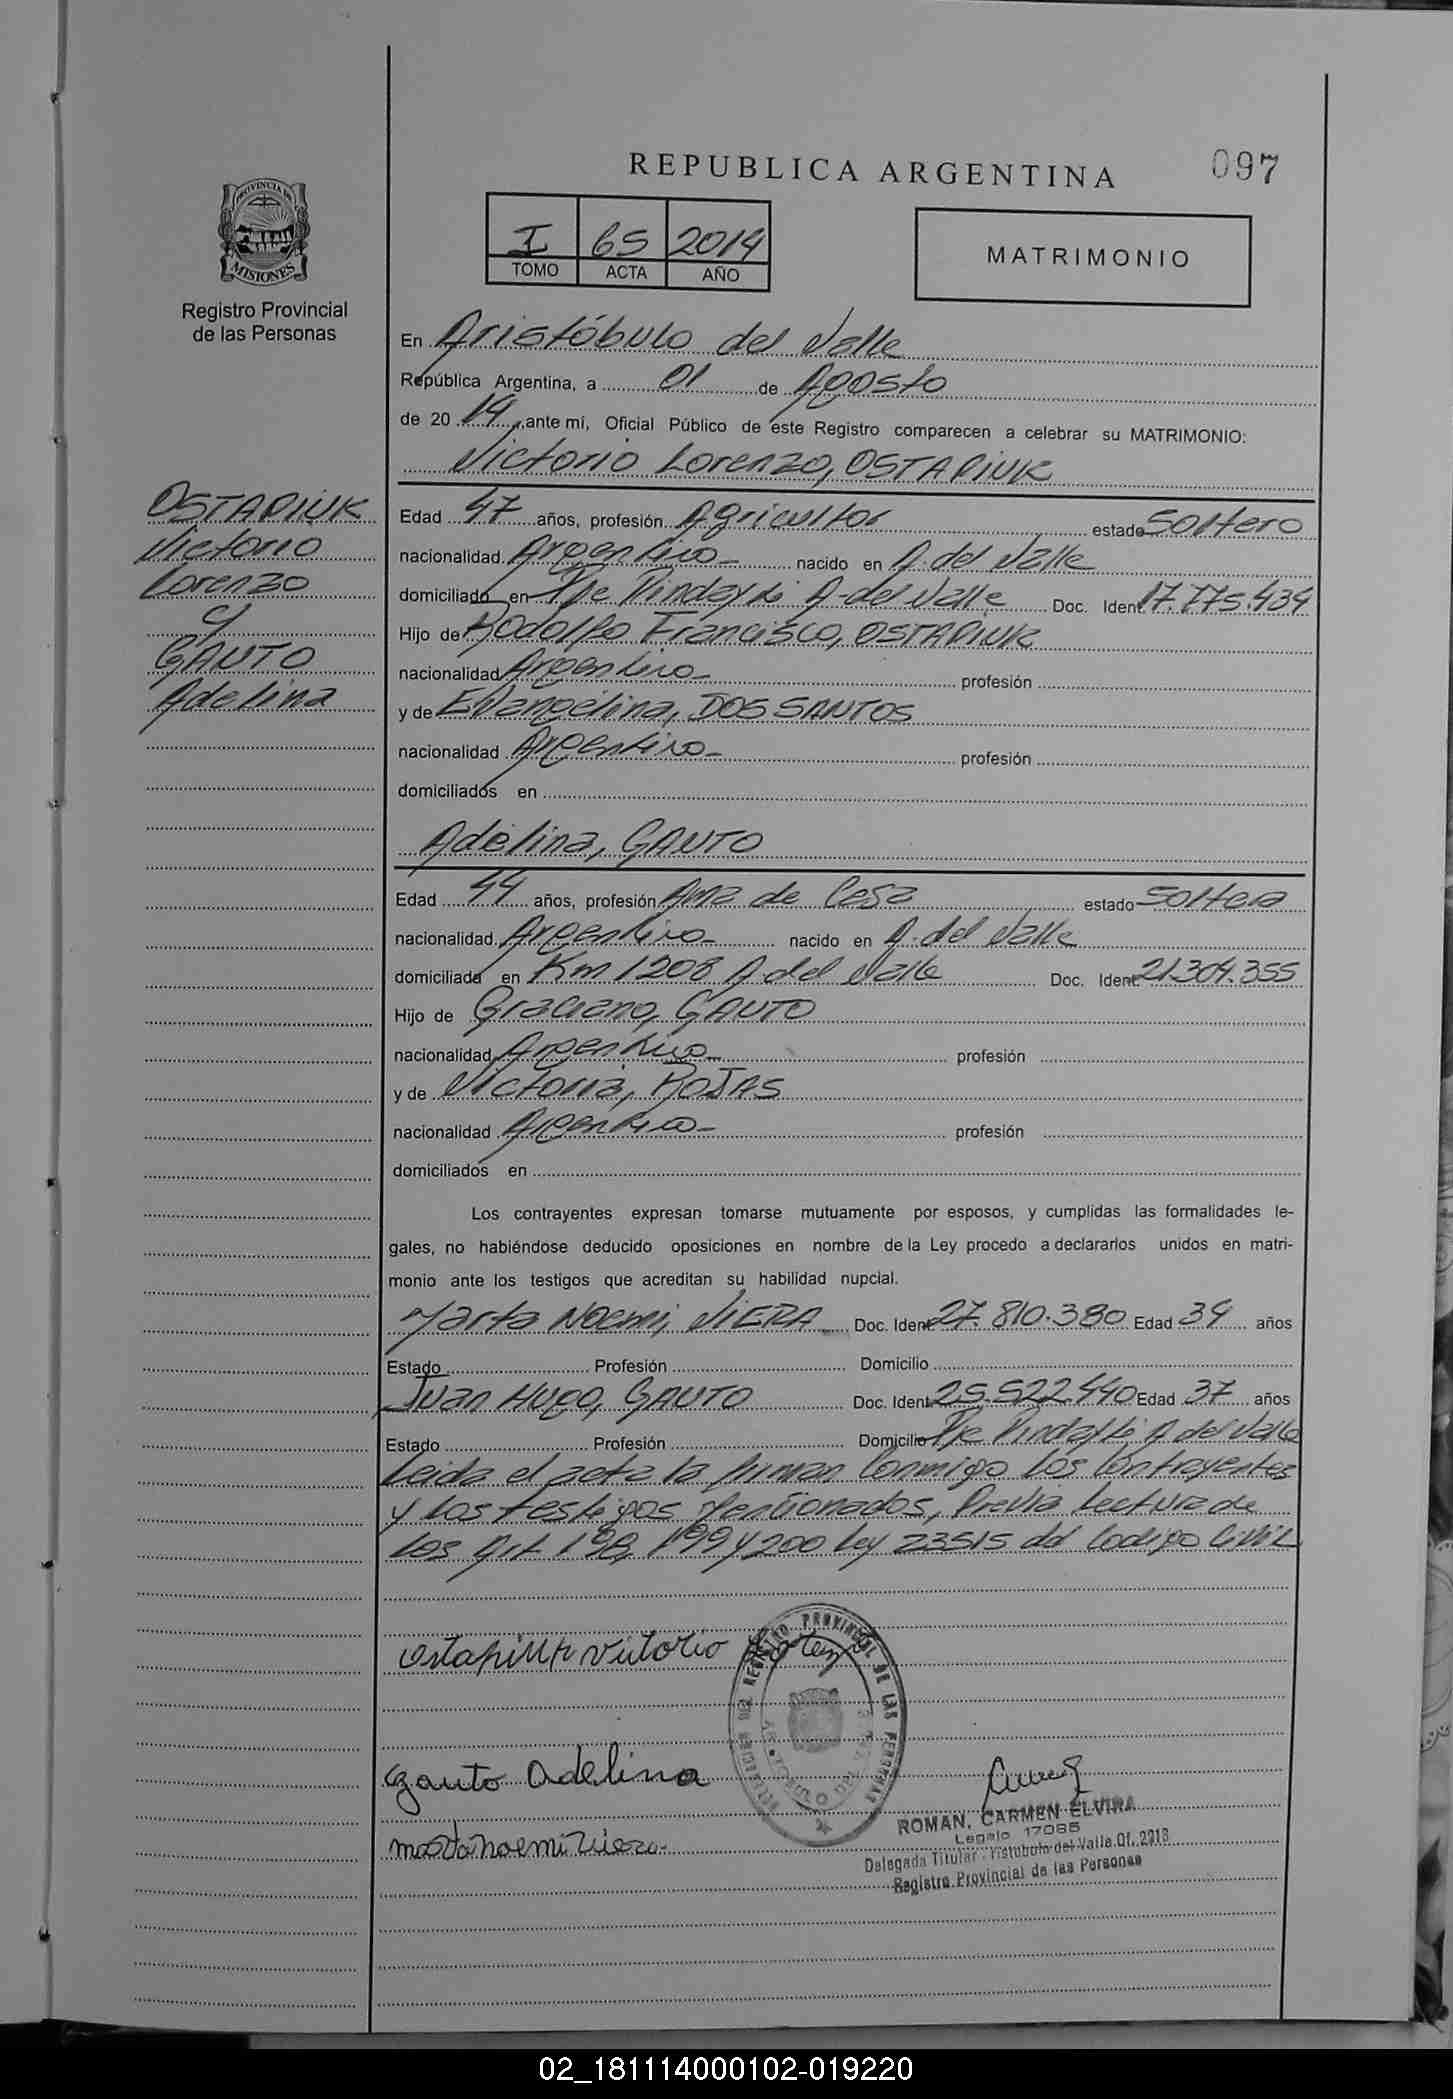 REPUBLICA ARGENTINA
097
PROVINCIA DE
MISIONES
Registro Provincial
de las Personas
I 65 2014
TOMO ACTA AÑO
MATRIMONIO
En Aristóbulo del Valle
República Argentina, a 01 de Agosto
de 20 14, ante mí, Oficial Público de este Registro comparecen a celebrar su MATRIMONIO:
Victorio Lorenzo, OSTAPIUK
OSTAPIUK
Victorio
Lorenzo
y
GAUTO
Adelina
Edad 47 años, profesión Agricultor estado Soltero
nacionalidad Argentino nacido en A. del Valle
domiciliado en Pje Pindayti A. del Valle Doc. Ident. 17.775.434
Hijo de Rodolfo Francisco, OSTAPIUK
nacionalidad Argentino profesión
y de Evangelina, DOS SANTOS
nacionalidad Argentina profesión
domiciliados en
Adelina, GAUTO
Edad 44 años, profesión Ama de Casa estado Soltera
nacionalidad Argentina nacido en A. del Valle
domiciliada en Km 1208 A del Valle Doc. Ident. 21.304.355
Hijo de Graciano, GAUTO
nacionalidad Argentino profesión
y de Victoria, ROJAS
nacionalidad Argentina profesión
domiciliados en
Los contrayentes expresan tomarse mutuamente por esposos, y cumplidas las formalidades le-
gales, no habiéndose deducido oposiciones en nombre de la Ley procedo a declararlos unidos en matri-
monio ante los testigos que acreditan su habilidad nupcial.
Marta Noemi, VIERA Doc. Ident. 27.810.380 Edad 34 años
Estado Profesión Domicilio
Juan Hugo, GAUTO Doc. Ident. 25.522.440 Edad 37 años
Estado Profesión Domicilio Pje Pindayti A del Valle
Leida el acta la firman Conmigo los Contrayentes
y los testigos Mencionados, Previa Lectura de
los Art 198, 199 y 200 Ley 23515 del Codigo Civil
Ostapiuk Victorio
REGISTRO PROVINCIAL DE LAS PERSONAS
Gauto Adelina
marta noemi Viera
ROMAN, CARMEN ELVIRA
Legajo 17085
Delegada Titular Aristobulo del Valle Of. 2013
Registro Provincial de las Personas
02_181114000102-019220